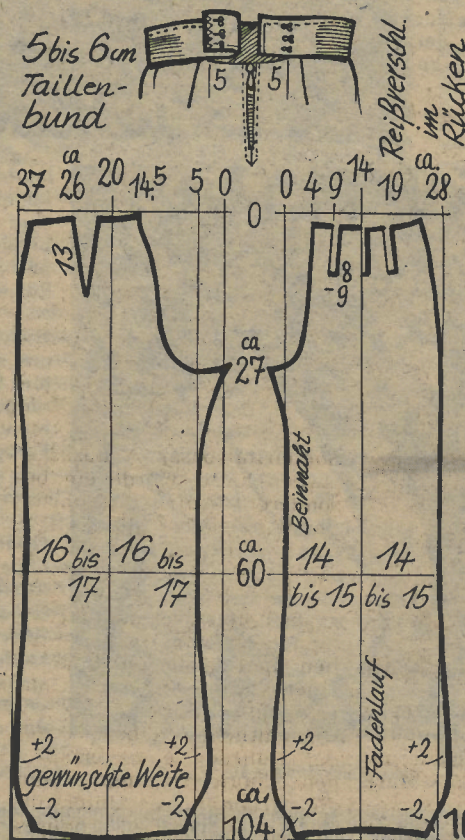 5 bis 6 cm
Taillen-
bund
5 5
Reißverschl.
im
Rücken
ca
37 26 20 14,5 5 0
0 4 9 14 19 ca. 28
0
13
8
-9
ca
27
Beinnaht
16 bis 17
16 bis 17
ca.
60
14 bis 15
14 bis 15
Fadenlauf
+2 +2
gewünschte Weite
-2 -2
ca.
104
+2 +2
-2 -2